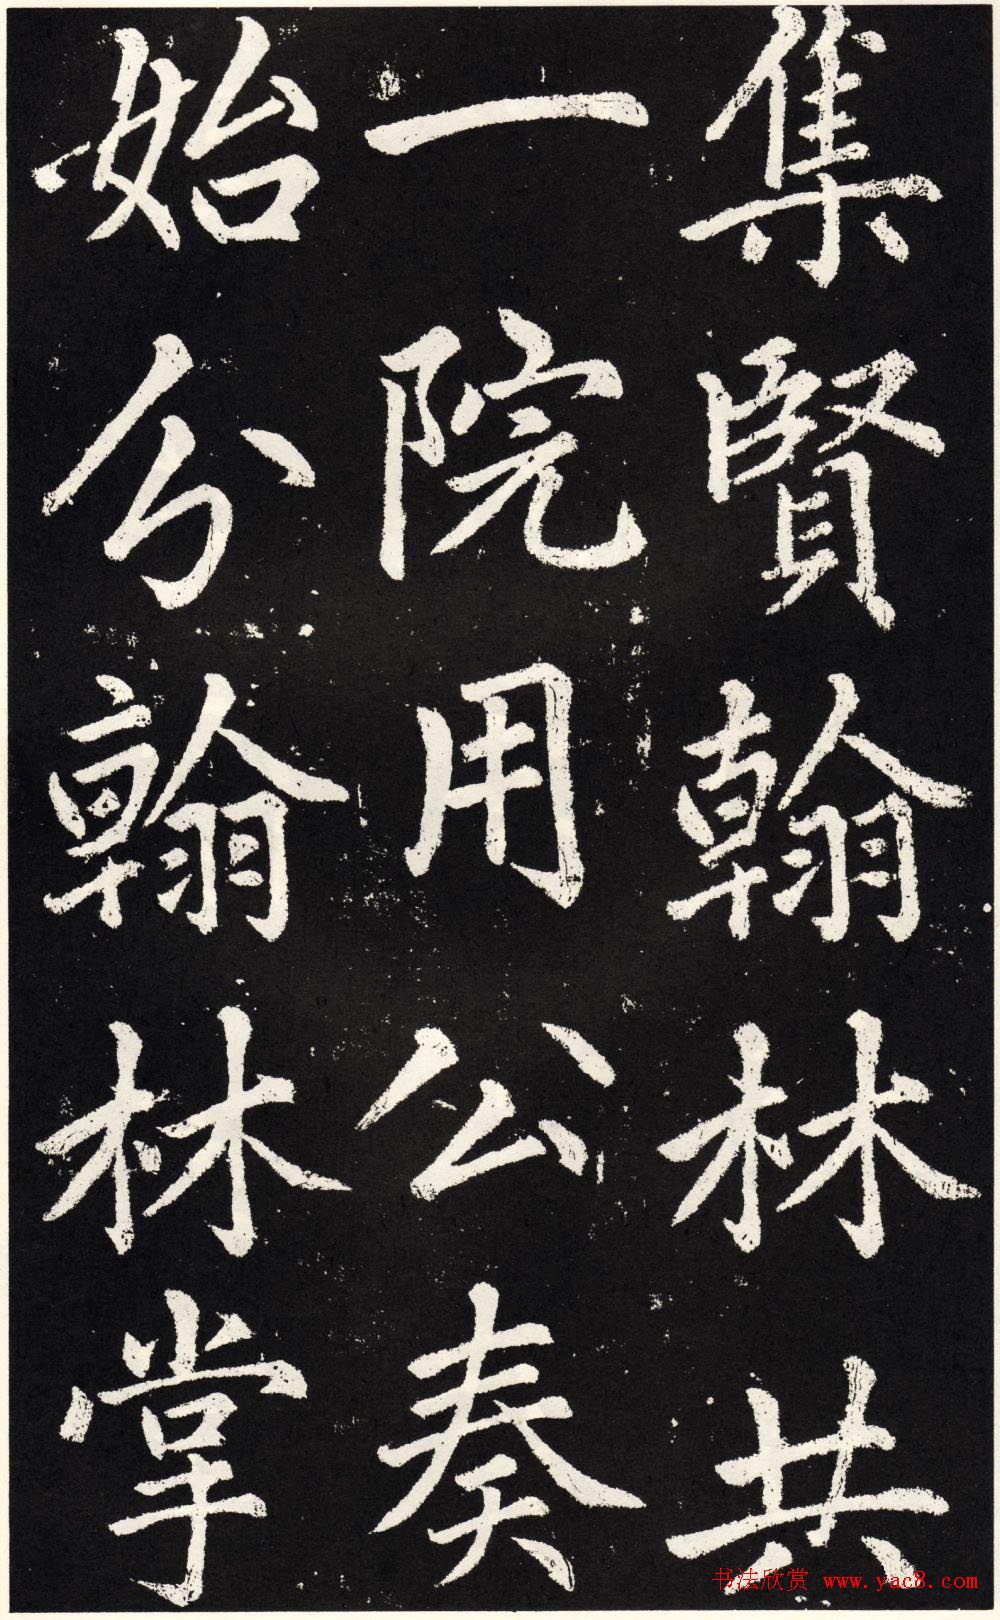 集賢翰林共
一院用公奏
始分翰林掌
书法欣赏 www.yac8.com